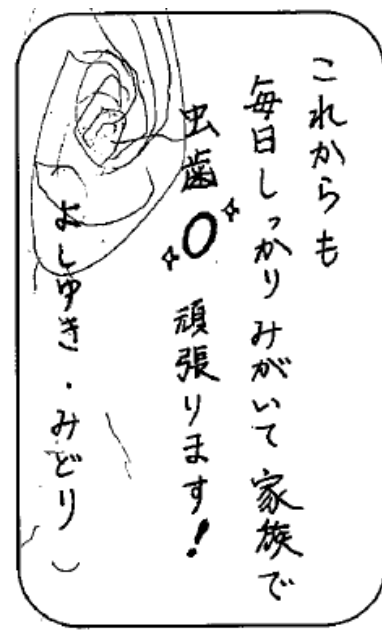 これからも
毎日しっかりみがいて家族で
虫歯0頑張ります!
よしゆき・みどり